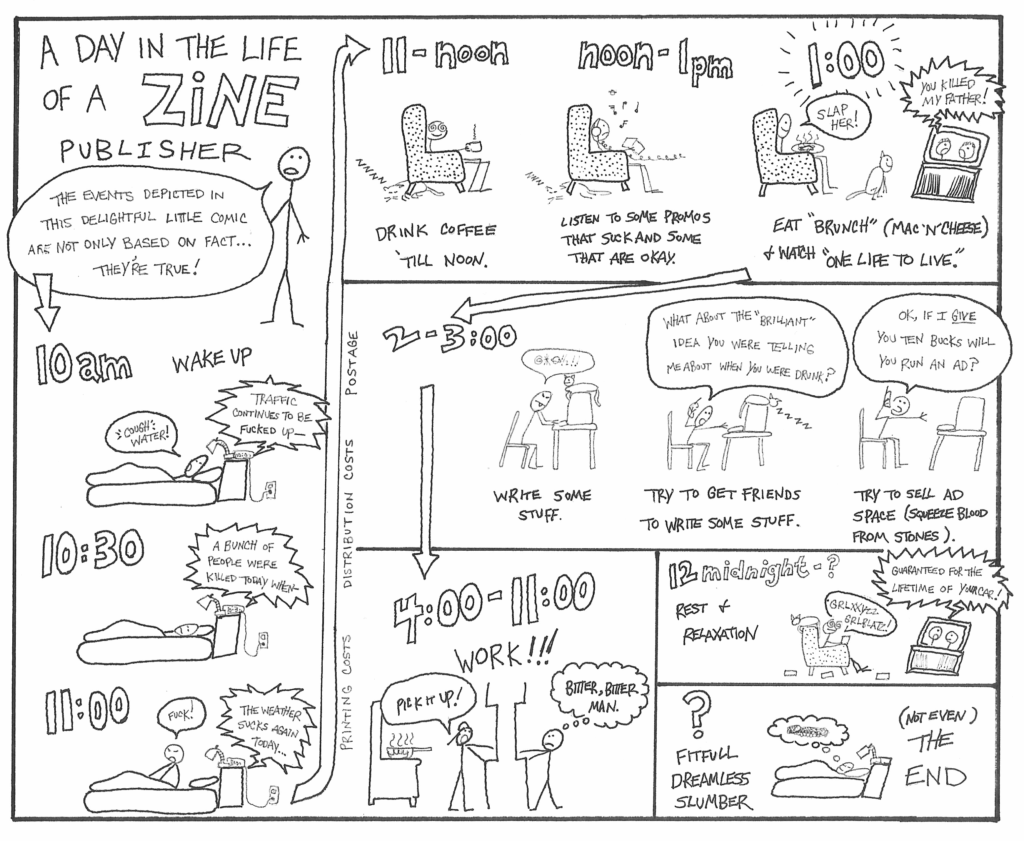 A DAY IN THE LIFE
OF A ZiNE
PUBLISHER
THE EVENTS DEPICTED IN
THIS DELIGHTFUL LITTLE COMIC
ARE NOT ONLY BASED ON FACT...
THEY'RE TRUE!
10am
WAKE UP
TRAFFIC
CONTINUES TO BE
FUCKED UP—
COUGH:
WATER!
10:30
A BUNCH OF
PEOPLE WERE
KILLED TODAY WHEN—
11:00
FUCK!
THE WEATHER
SUCKS AGAIN
TODAY...
PRINTING COSTS
DISTRIBUTION COSTS
POSTAGE
11-noon
DRINK COFFEE
'TILL NOON.
noon-1pm
LISTEN TO SOME PROMOS
THAT SUCK AND SOME
THAT ARE OKAY.
1:00
SLAP
HER!
YOU KILLED
MY FATHER!
EAT "BRUNCH" (MAC'N'CHEESE)
+ WATCH "ONE LIFE TO LIVE."
2-3:00
WRITE SOME
STUFF.
WHAT ABOUT THE "BRILLIANT"
IDEA YOU WERE TELLING
ME ABOUT WHEN YOU WERE DRUNK?
ZZZZ
TRY TO GET FRIENDS
TO WRITE SOME STUFF.
OK, IF I GIVE
YOU TEN BUCKS WILL
YOU RUN AN AD?
TRY TO SELL AD
SPACE (SQUEEZE BLOOD
FROM STONES).
4:00-11:00
WORK!!!
PICK IT UP!
BITTER, BITTER
MAN.
12 midnight-?
REST +
RELAXATION
GRLXXYZZ
GRLPLATZ!
GUARANTEED FOR THE
LIFETIME OF YOUR CAR!
?
FITFULL
DREAMLESS
SLUMBER
(NOT EVEN)
THE
END